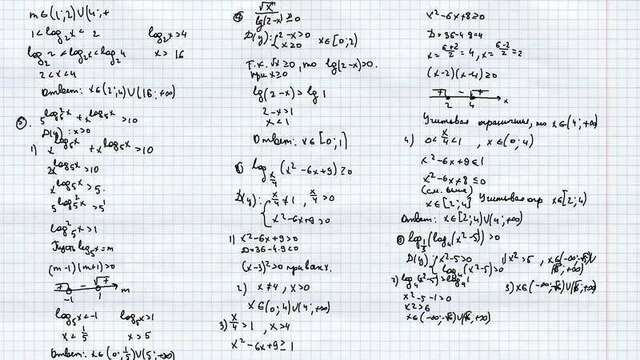 m∈(1;2)∪(4;+
1<log₂x<2
log₂x>4
log₂2<log₂x<log₂4
x>16
2<x<4
Ответ: x∈(2;4)∪(16;+∞)
5^log₅²x + x^log₅x >10
D(y): x>0
1) x^log₅x + x^log₅x >10
2x^log₅x >10
x^log₅x >5
5^log₅²x >5¹
log₅²x>1
Пусть log₅x=m
(m-1)(m+1)>0
-1 1 m
log₅x<-1 log₅x>1
x<1/5 x>5
Ответ: x∈(0;1/5)∪(5;+∞)
√x / lg(2-x) ≥0
D(y): {2-x>0 x≥0 x∈[0;2)
Т.к. √x≥0, то lg(2-x)>0.
при x≥0
lg(2-x)>lg1
2-x>1
x<1
Ответ: x∈[0;1)
log x/4 (x²-6x+9)≥0
D(y): {x/4≠1, x/4>0
x²-6x+9>0
1) x²-6x+9>0
D=36-4·9=0
(x-3)²>0 при всех.
2) x≠4, x>0
x∈(0;4)∪(4;+∞)
3) x/4>1, x>4
x²-6x+9≥1
x²-6x+8≥0
D=36-4·8=4
x=(6+2)/2=4, x=(6-2)/2=2
(x-2)(x-4)≥0
2 4 x
Учитывая ограничения, то x∈(4;+∞)
4) 0<x/4<1, x∈(0;4)
x²-6x+9≤1
x²-6x+8≤0
(см. выше)
x∈[2;4] Учитывая огр x∈[2;4)
Ответ: x∈[2;4)∪(4;+∞)
log₁/₃(log₄(x²-5))>0
D(y) {x²-5>0 log₄(x²-5)>0
1) x²>5, x∈(-∞;-√5)∪(√5;+∞)
2) log₄(x²-5)>log₄1
x²-5-1>0
x²>6
x∈(-∞;-√6)∪(√6;+∞)
3) x∈(-∞;-√6)∪(√6;+∞)